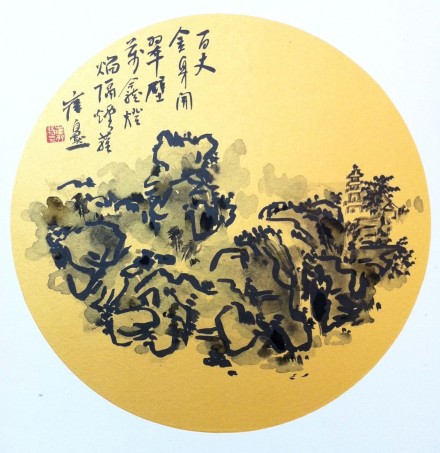 百丈
金身開
翠壁
萬龕燈
焰隔煙蘿
崔自默